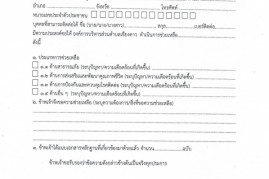 อำเภอ จังหวัด โทรศัพท์
หมายเลขประจำตัวประชาชน
บุคคลที่สามารถติดต่อได้ ชื่อ (นาย/นาง/นางสาว) สกุล เบอร์ติดต่อ
มีความประสงค์ให้ องค์การบริหารส่วนตำบล ดำเนินการช่วยเหลือ
ดังนี้
๑. ประเภทการช่วยเหลือ
๑.๑ ด้านสาธารณภัย (ระบุปัญหา/ความเดือดร้อนที่เกิดขึ้น)
๑.๒ ด้านการส่งเสริมและพัฒนาคุณภาพชีวิต (ระบุปัญหา/ความเดือดร้อนที่เกิดขึ้น)
๑.๓ ด้านการป้องกันและควบคุมโรคติดต่อ (ระบุปัญหา/ความเดือดร้อนที่เกิดขึ้น)
๑.๔ ด้านอื่น ๆ (ระบุปัญหา/ความเดือดร้อนที่เกิดขึ้น)
๒. ข้าพเจ้าขอความช่วยเหลือ (ระบุความต้องการ/ที่ขอความช่วยเหลือ)
๓. ข้าพเจ้าได้แนบเอกสารหลักฐานที่เกี่ยวข้องมาด้วยแล้ว จำนวน ฉบับ
ข้าพเจ้าขอรับรองว่าข้อความดังกล่าวข้างต้นเป็นจริงทุกประการ